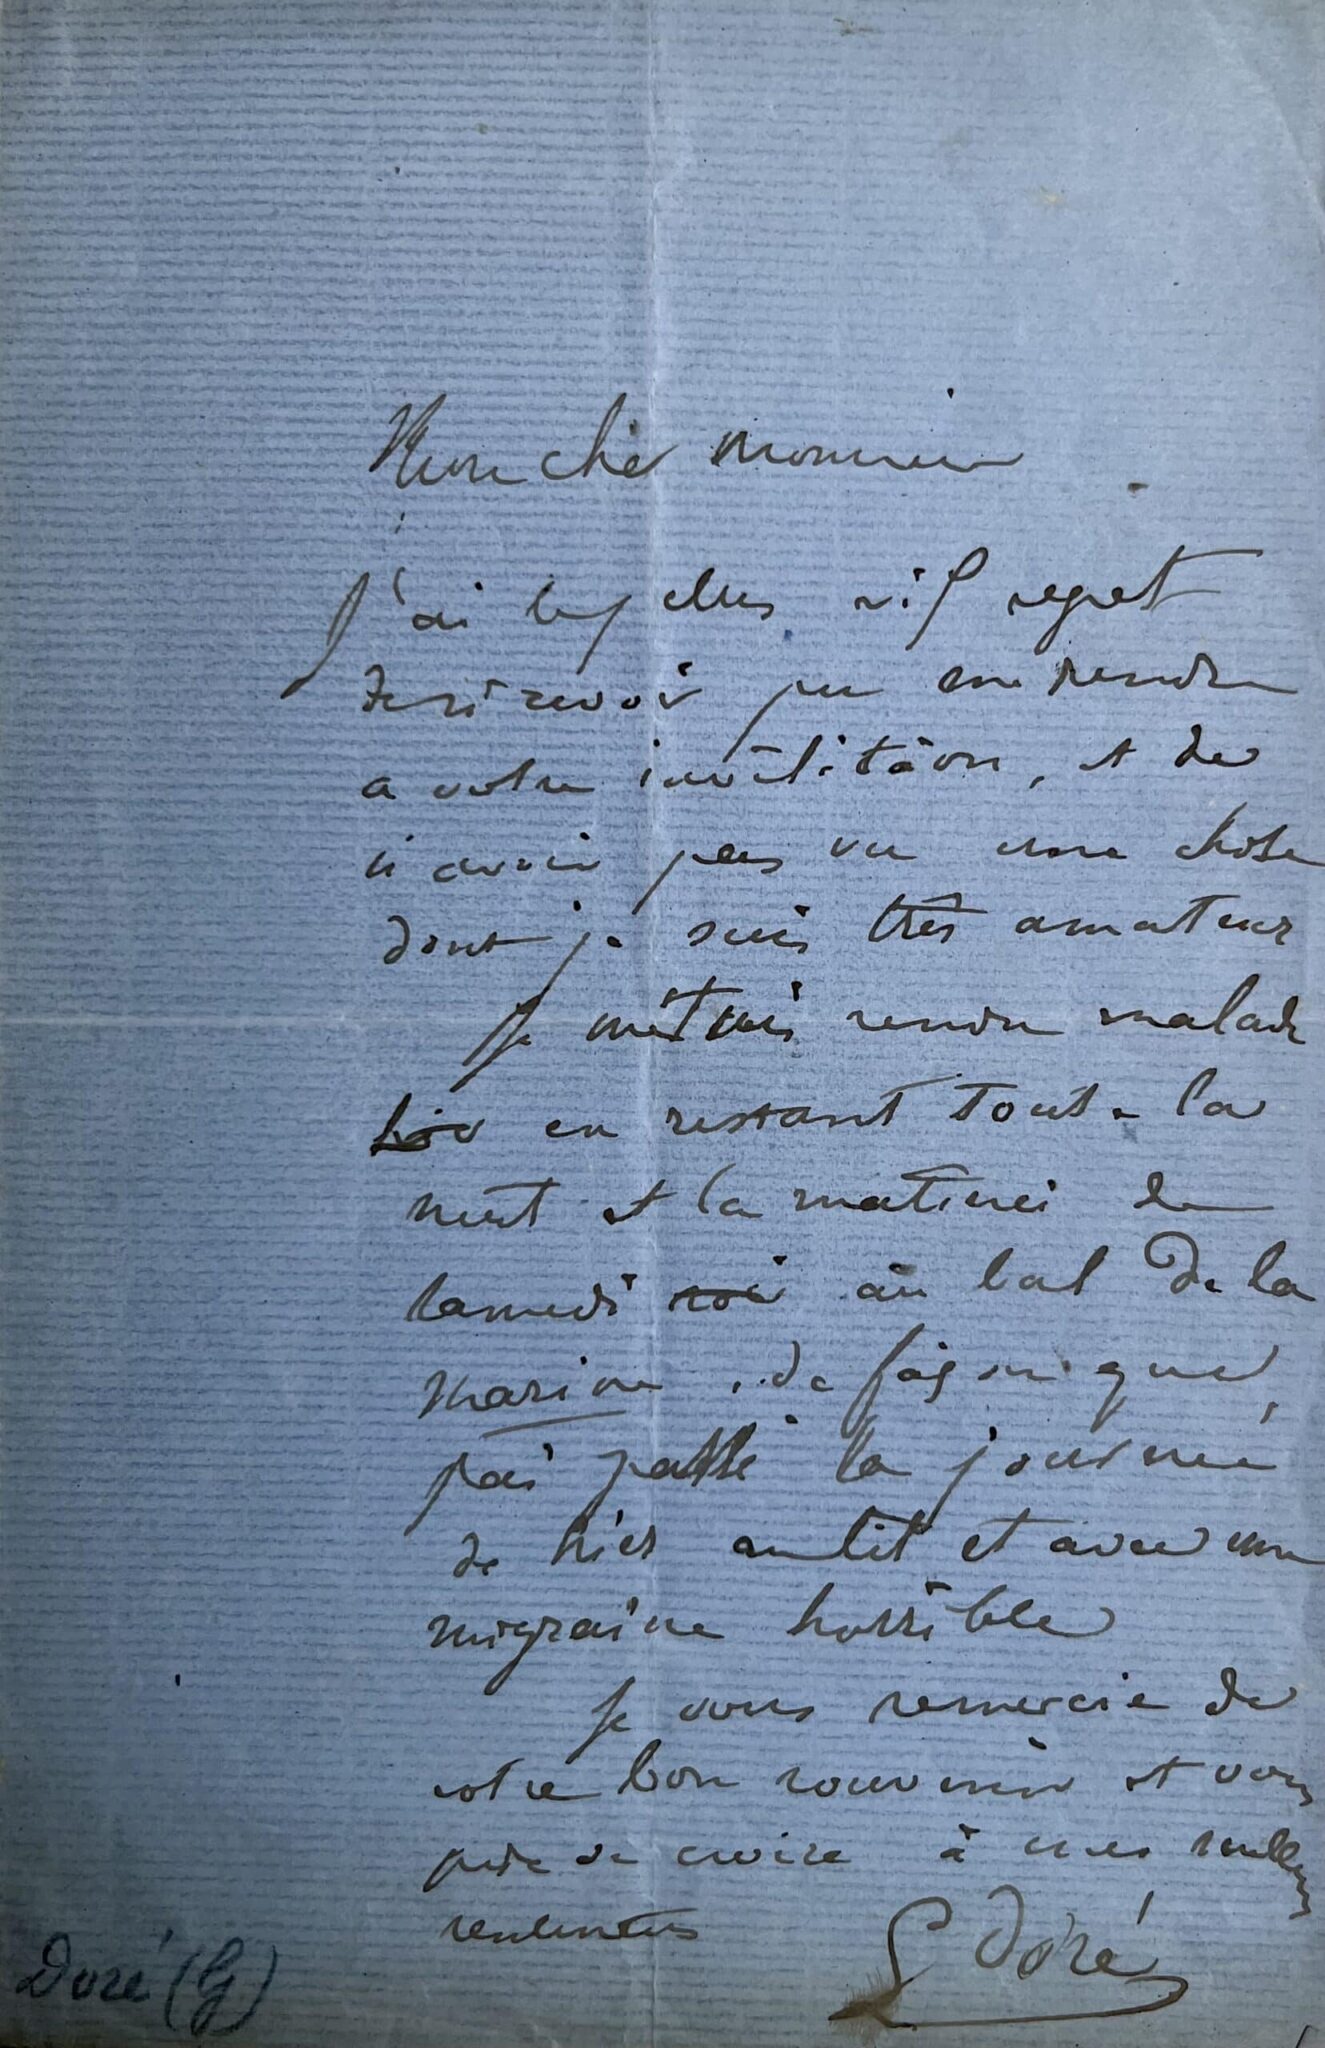 Mon cher monsieur
J'ai le plus vif regret
de n'avoir pu me rendre
a votre invitation, et de
n'avoir pas vu une chose
dont je suis très amateur
Je m'étais rendu malade
en restant toute la
nuit et la matinée de
samedi au bal de la
marine, de façon que
j'ai passé la journée
de hier au lit et avec une
migraine horrible
Je vous remercie de
votre bon souvenir et vous
prie de croire à mes meilleurs
sentiments
G Doré
Doré (G)